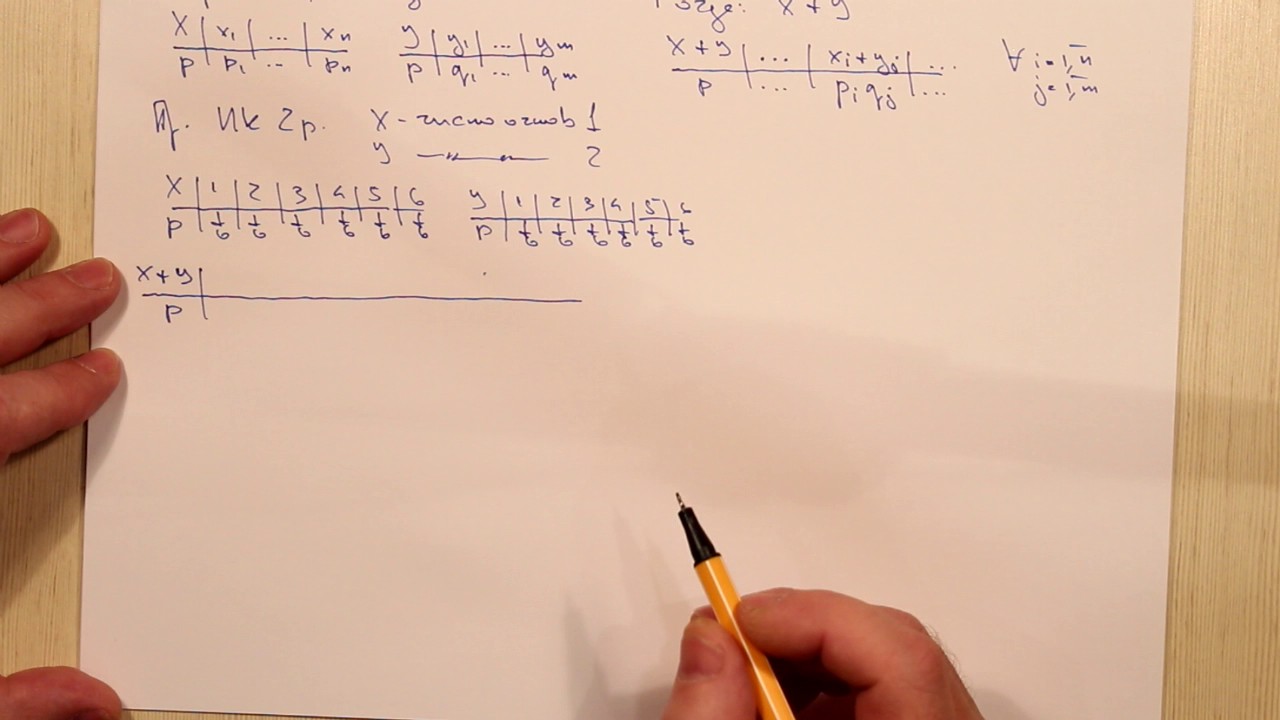 Тогда: X + Y
X | x₁ | ... | xₙ
P | p₁ | ... | pₙ
Y | y₁ | ... | yₘ
P | q₁ | ... | qₘ
X + Y | ... | xᵢ + yⱼ | ...
P | ... | pᵢqⱼ | ...
∀ i = 1,n
j = 1,m
Пр. Ик 2р. X - число очков 1
Y —〃— 2
X | 1 | 2 | 3 | 4 | 5 | 6
P | 1/6 | 1/6 | 1/6 | 1/6 | 1/6 | 1/6
Y | 1 | 2 | 3 | 4 | 5 | 6
P | 1/6 | 1/6 | 1/6 | 1/6 | 1/6 | 1/6
X + Y |
P |